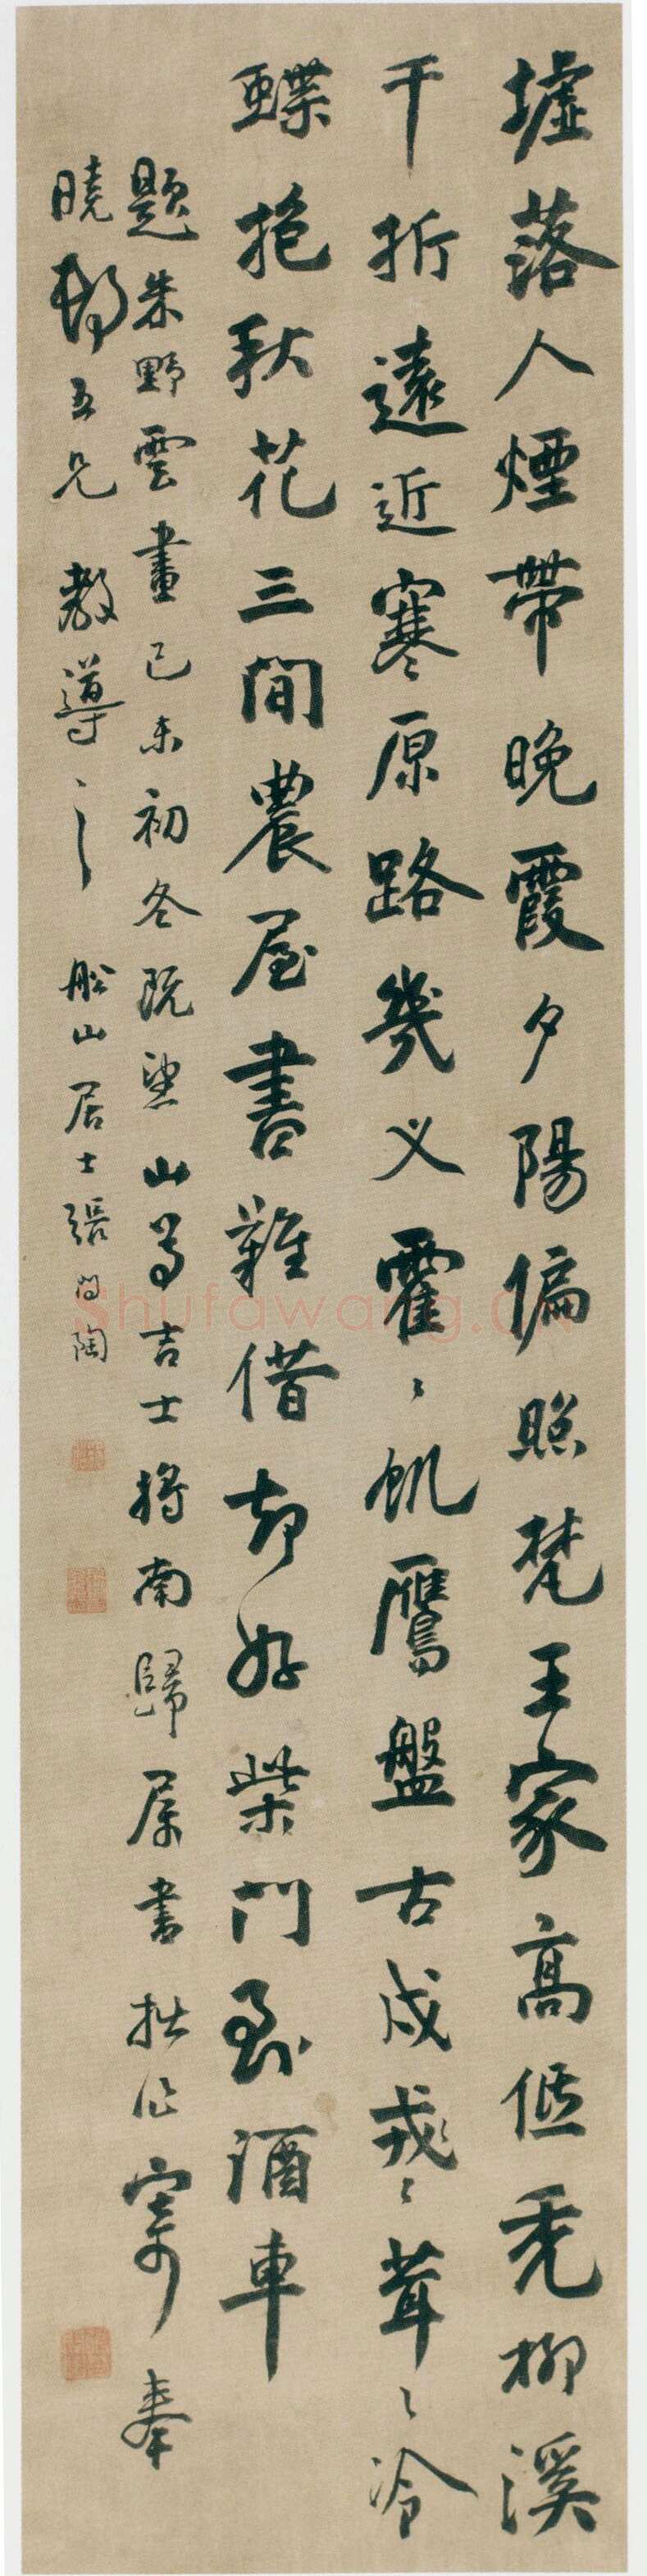 墟落人煙帶晚霞夕陽偏照梵王家高低禿柳溪
千折遠近寒原路幾义霍〻飢鷹盤古戍戎〻茸〻冷
蝶抱秋花三間農屋書難借却好柴門到酒車
題朱野雲畫己未初冬既望山尊吉士將南歸屬書拙作寄奉
曉五兄教導之 船山居士張問陶
shufawang.cn